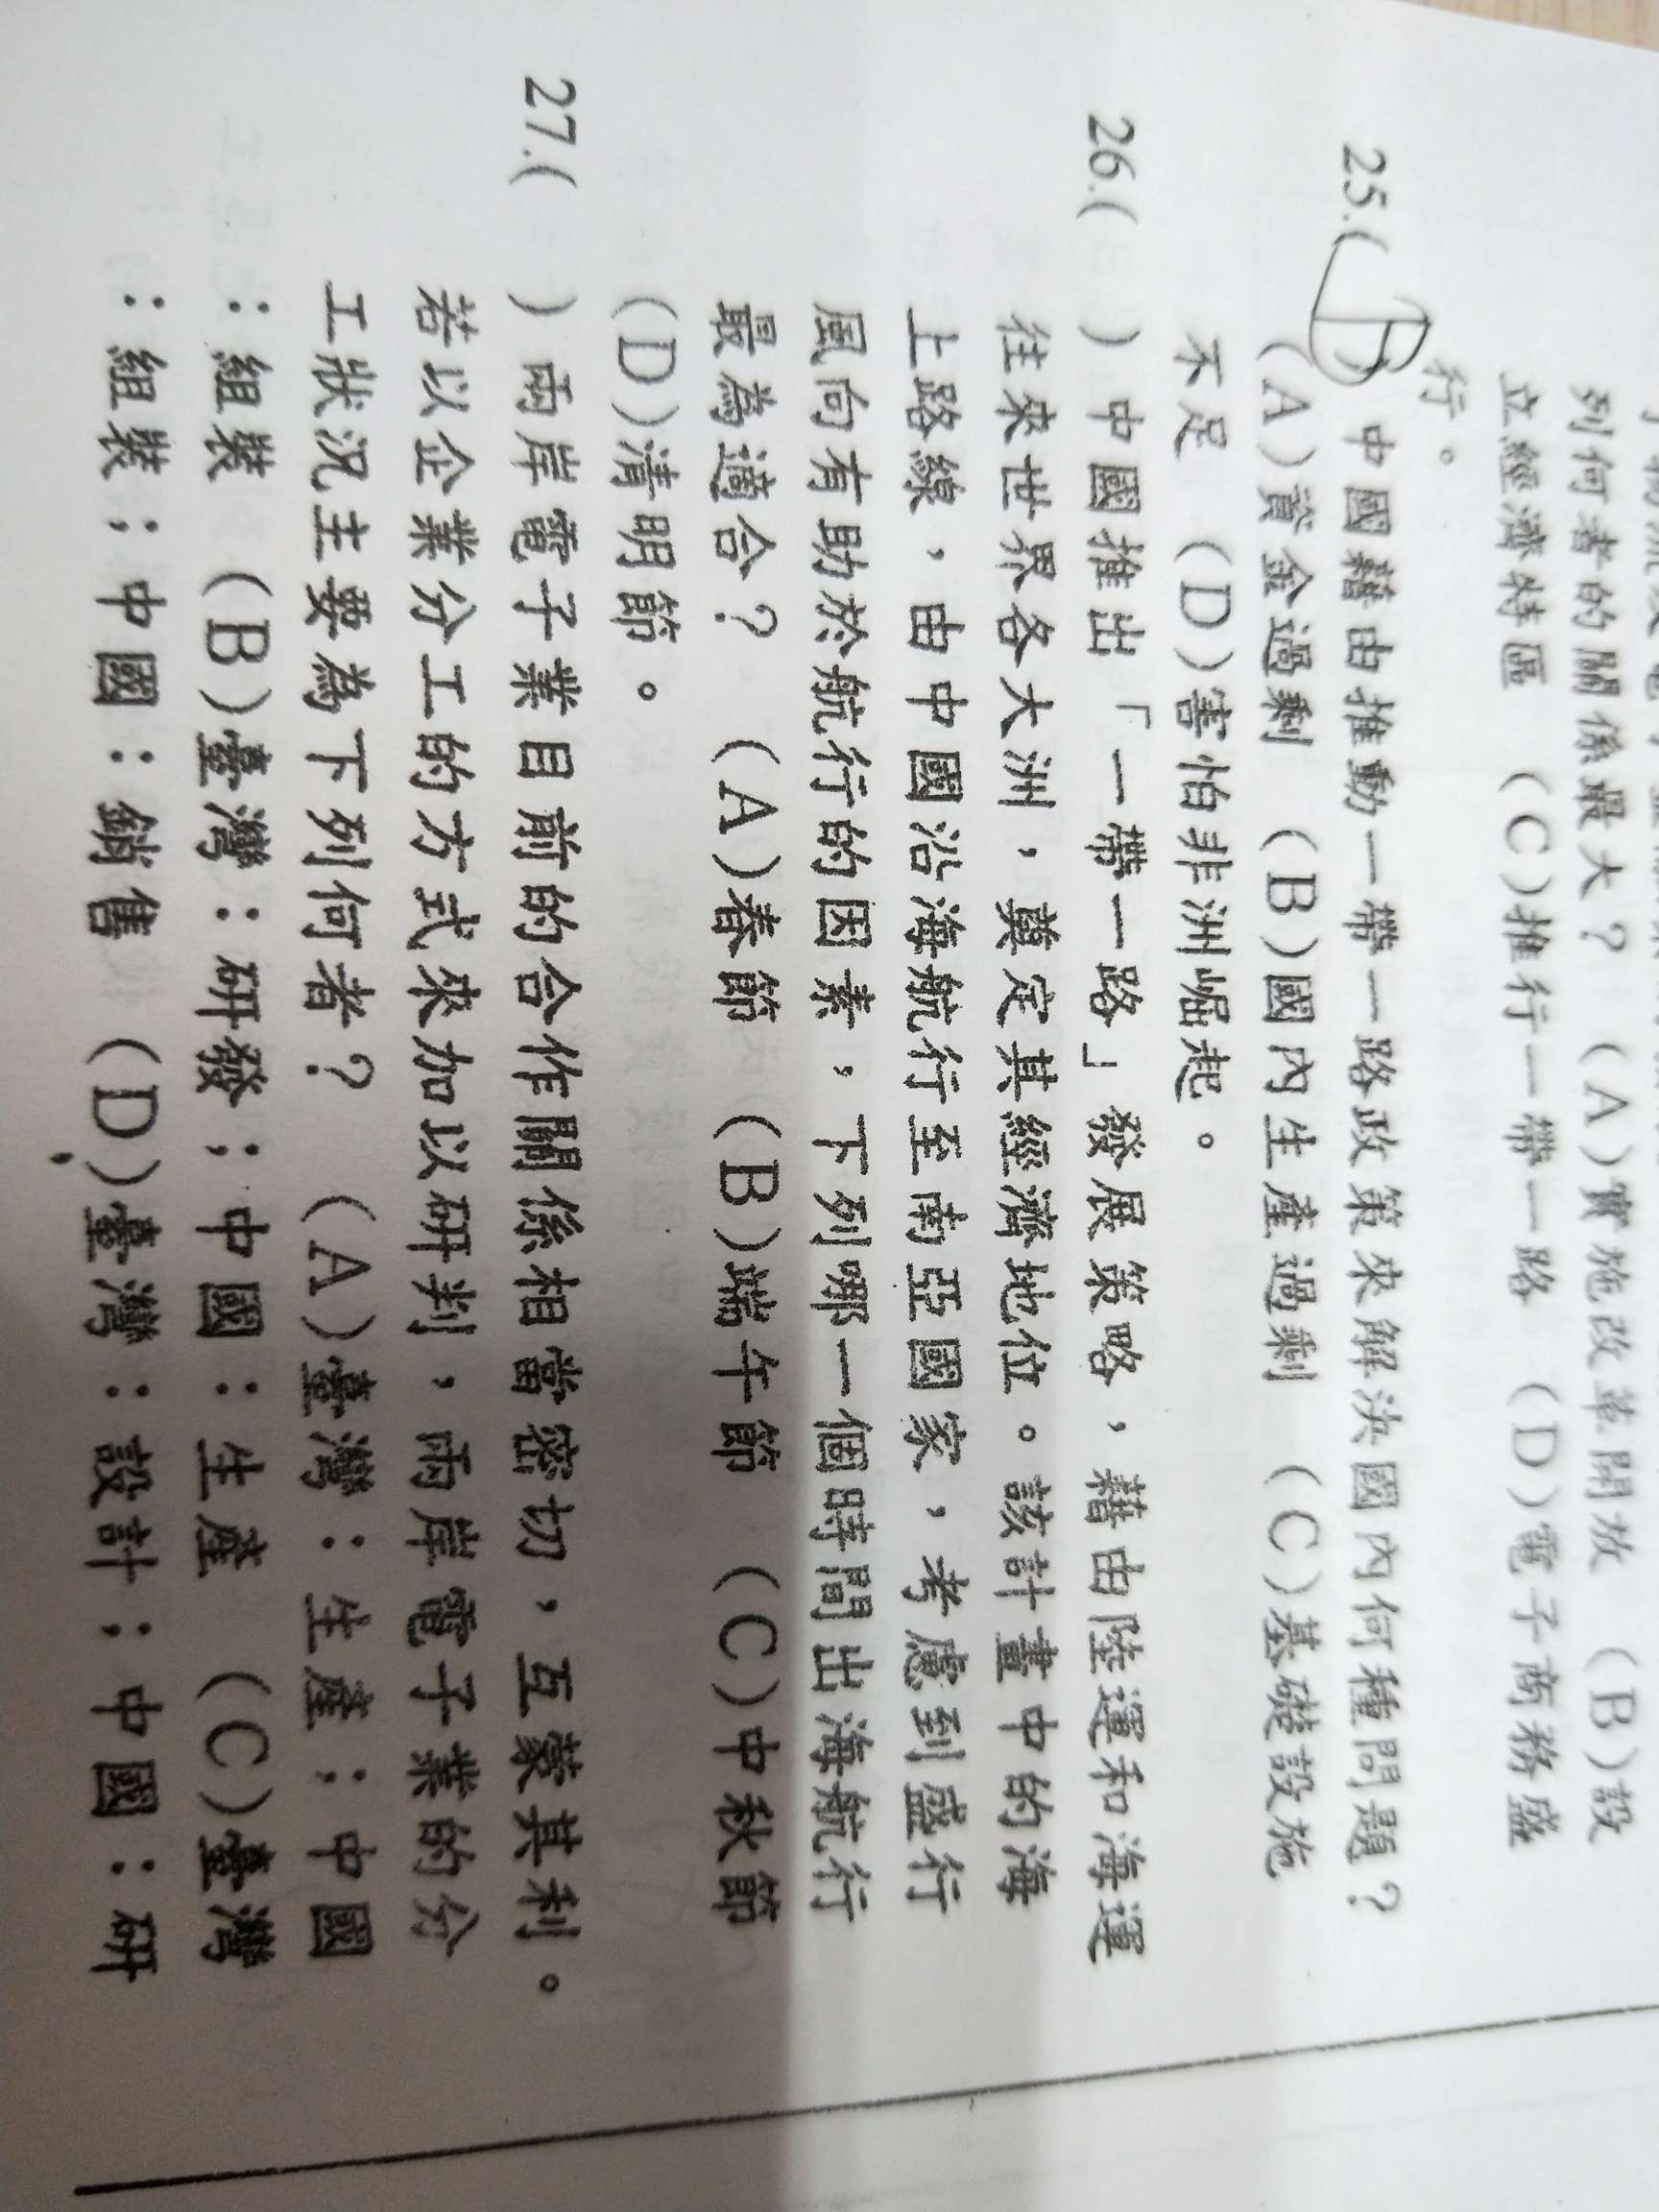 列何者的關係最大？　(A)實施改革開放　(B)設
立經濟特區　(C)推行一帶一路　(D)電子商務盛
行。
25.(B)中國藉由推動一帶一路政策來解決國內何種問題？
(A)資金過剩　(B)國內生產過剩　(C)基礎設施
不足　(D)害怕非洲崛起。
26.(　)中國推出「一帶一路」發展策略，藉由陸運和海運
往來世界各大洲，奠定其經濟地位。該計畫中的海
上路線，由中國沿海航行至南亞國家，考慮到盛行
風向有助於航行的因素，下列哪一個時間出海航行
最為適合？　(A)春節　(B)端午節　(C)中秋節
(D)清明節。
27.(　)兩岸電子業目前的合作關係相當密切，互蒙其利。
若以企業分工的方式來加以研判，兩岸電子業的分
工狀況主要為下列何者？　(A)臺灣：生產；中國
：組裝　(B)臺灣：研發；中國：生產　(C)臺灣
：組裝；中國：銷售　(D)臺灣：設計；中國：研